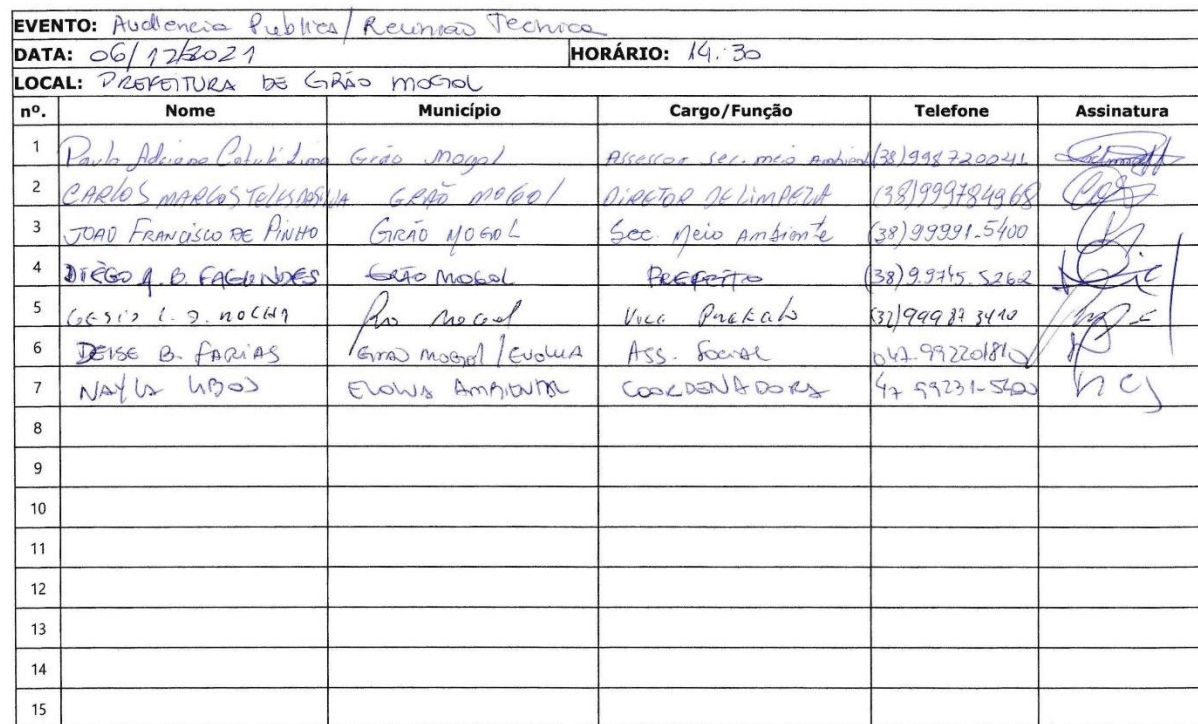 EVENTO: Audiencia Publica / Reunião Tecnica
DATA: 06/12/2021 HORÁRIO: 14:30
LOCAL: PREFEITURA DE GRÃO MOGOL
nº. Nome Município Cargo/Função Telefone Assinatura
1 Paulo Adriano Lima Grão Mogol Assessor sec. meio Ambient (38)998720041
2 CARLOS MARCOS TELES DA SILVA GRÃO MOGOL DIRETOR DE LIMPEZA (38)999784968
3 JOAO FRANCISCO DE PINHO GRÃO MOGOL Sec. Meio Ambiente (38)99991-5400
4 DIÊGO A. B. FAGUNDES GRÃO MOGOL PREFEITO (38)9.9745.5262
5 Mogol Vice
6 DEISE B. FARIAS GRÃO MOGOL / EVOLUA ASS. Social 047.992201810
7 NAYLA AMBIENTAL COORDENADORA 47 99231-5400
8
9
10
11
12
13
14
15